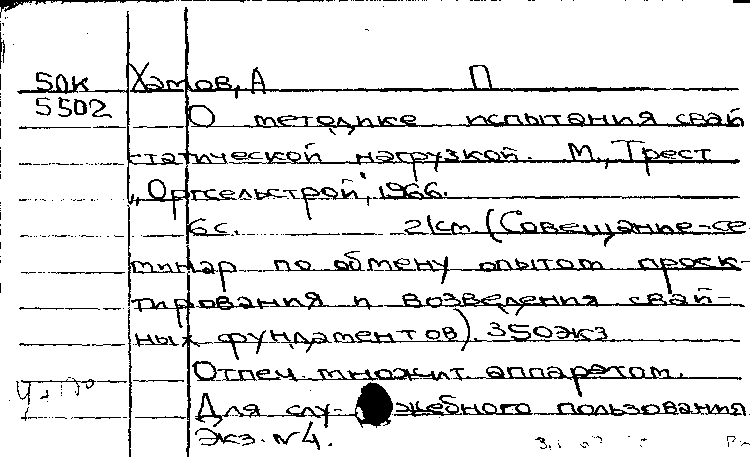 50К Хамов, А П
5502
О методике испытания свай
статической нагрузкой. М., Трест
„Оргсельстрой", 1966.
6с. 21см (Совещание-се
минар по обмену опытом проек-
тирования и возведения свай-
ных фундаментов). 350экз
Отпеч. множит. аппаратом.
Для слу- жебного пользования
Экз. №4.